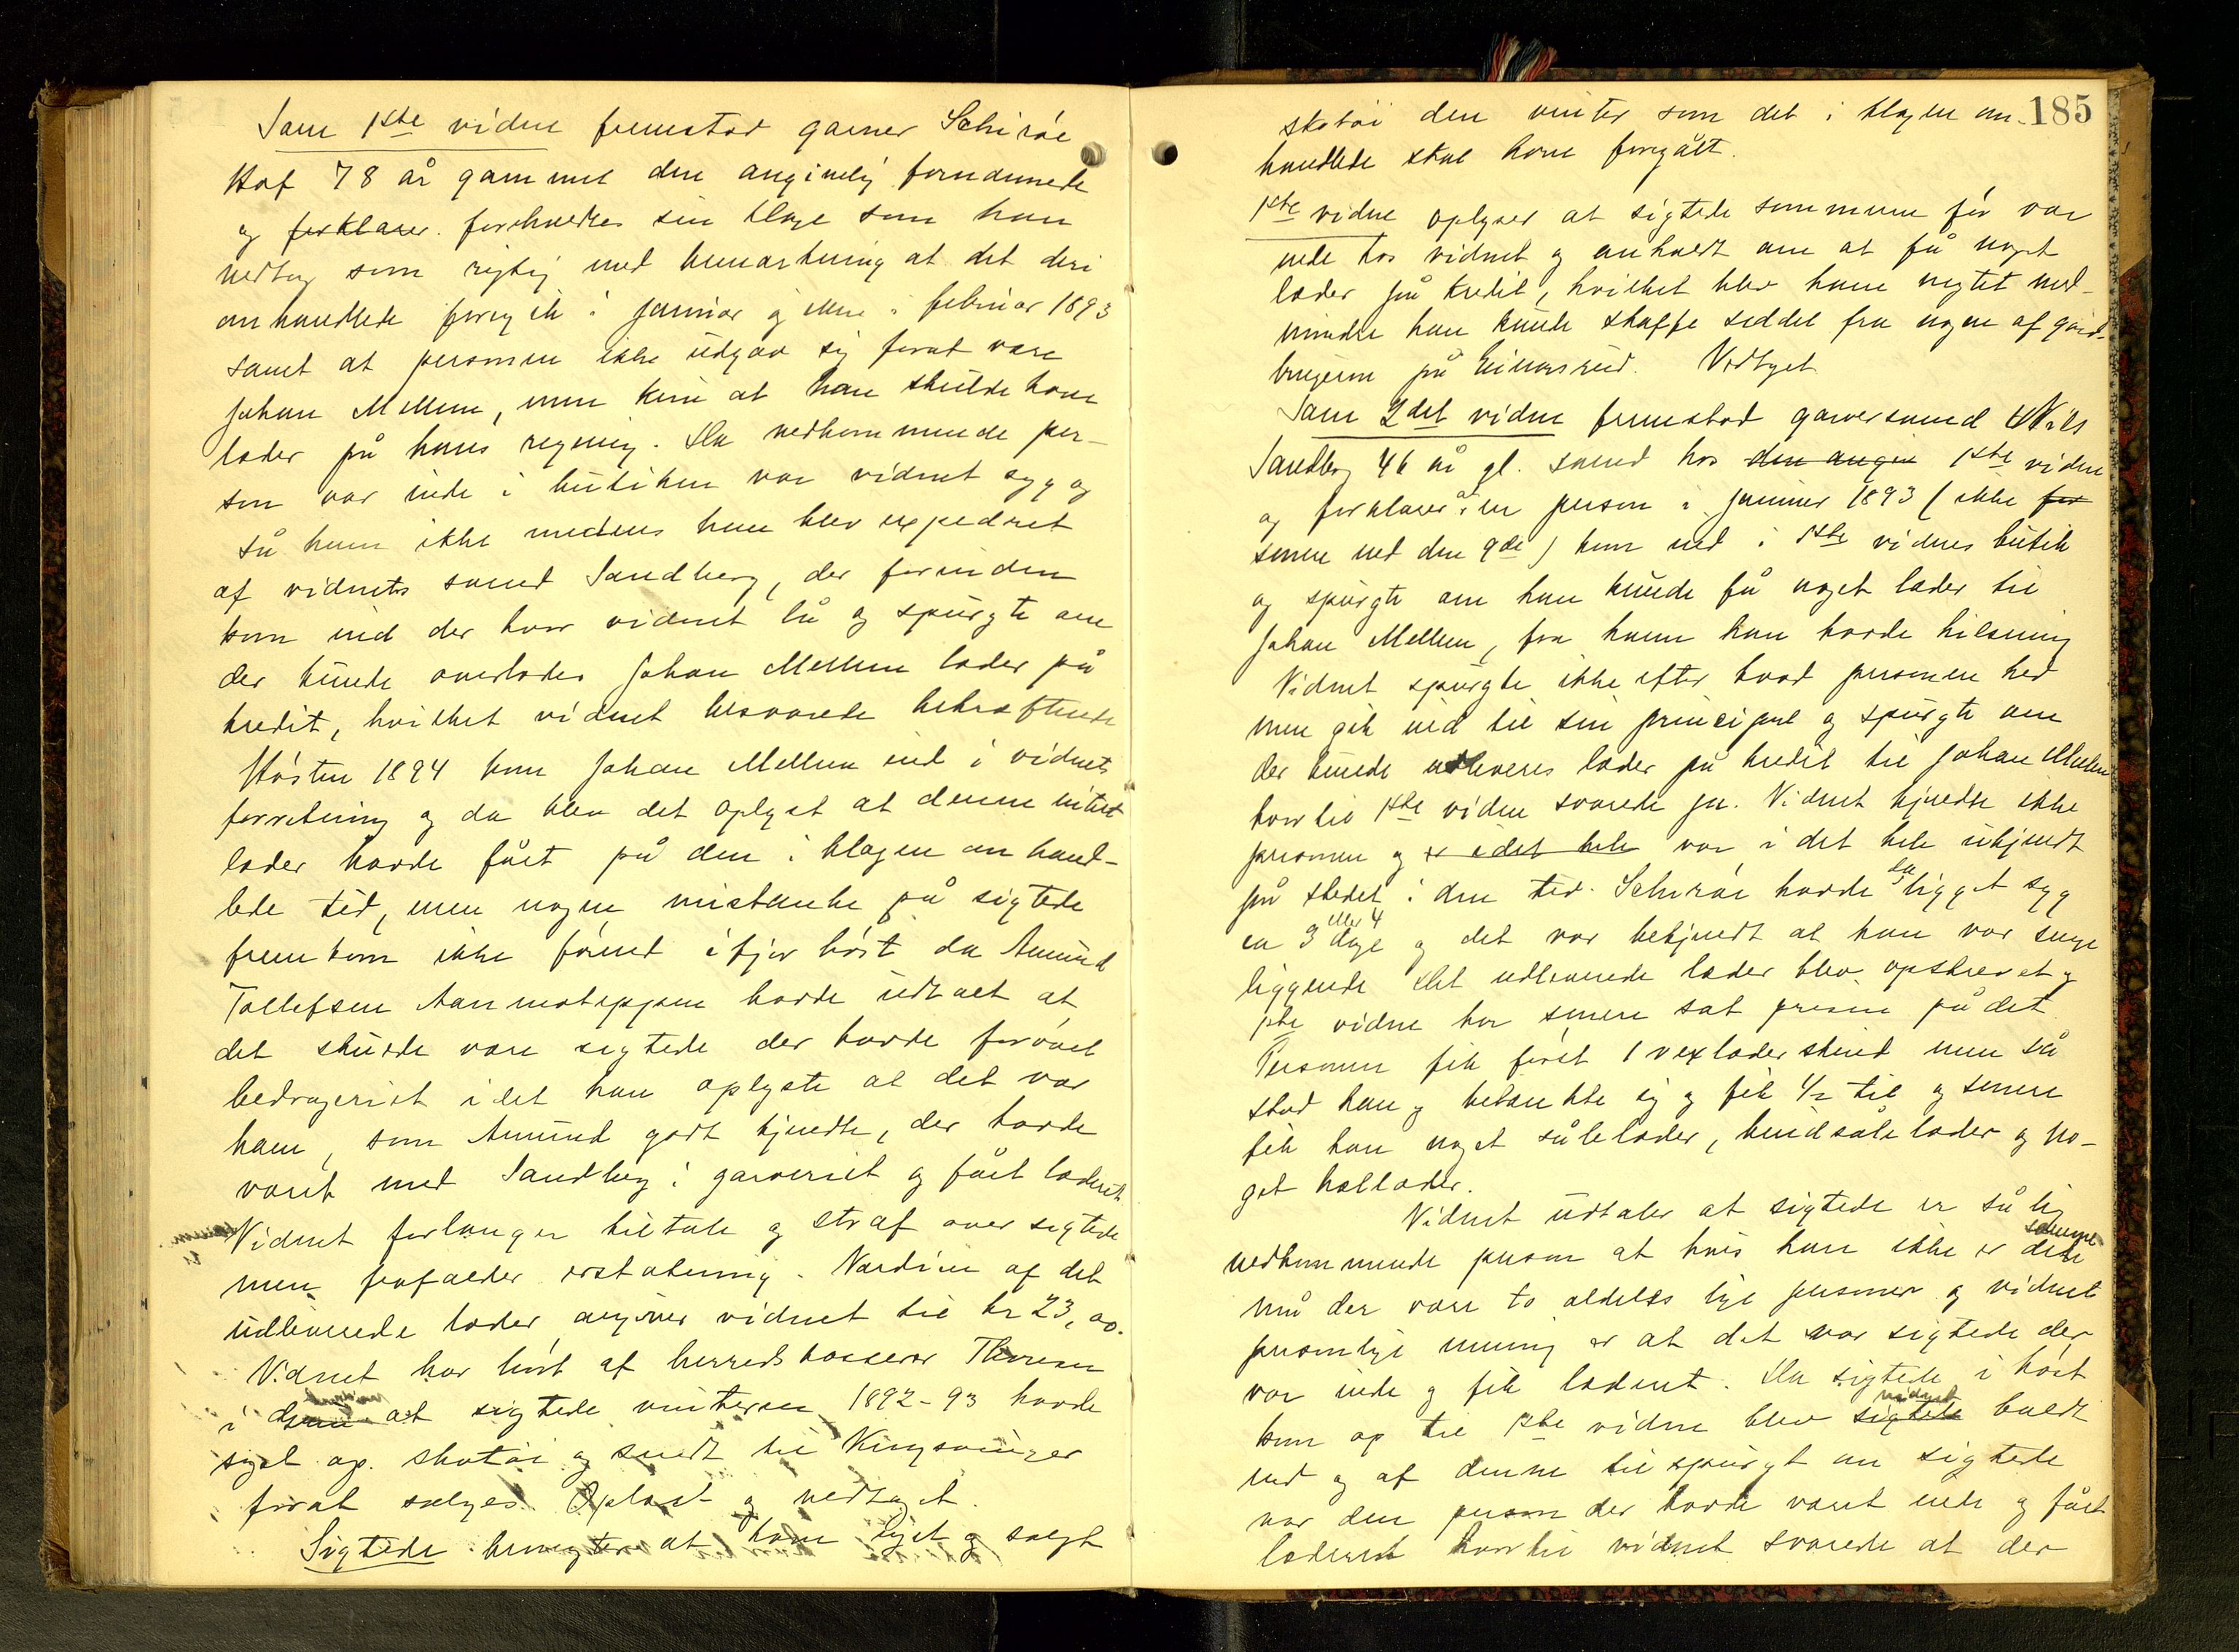 Som 1ste vidne fremstod garver Schiröe
Hof 78 år gammel den angivelig fornærmede
og forklarer. foreholdtes sin klage som han
vedtog som rigtig med bemærkning at det deri
omhandlede foregik i januar og ikke i februar 1893
samt at personen ikke udgav sig forat være
Johan Mellem, men kun at han skulde have
læder på hans regning. Da vedkommende per-
son var inde i butiken var vidnet syg og
så ham ikke medens han blev expedret
af vidnets svend Sandberg, der forinden
kom ind der hvor vidnet lå og spurgte om
der kunde overlades Johan Mellem læder på
kredit, hvilket vidnet besvarede bekræftende
Høsten 1894 kom Johan Mellem ind i vidnets
forretning og da blev det oplyst at denne intet
læder havde fået på den i klagen omhand-
lede tid, men nogen mistanke på sigtede
fremkom ikke førend ifjor høst da Amund
Tollefsen havde udtalt at
det skulde være sigtede der havde forøvet
bedrageriet idet han oplyste at det var
ham, som Amund godt kjendte, der havde
været med Sandberg i garveriet og fået læderet
Vidnet forlanger tiltale og straf over sigtede
men frafalder erstatning. Værdien af det
udleverede læder angiver vidnet til kr 23,00.
Vidnet har hørt af herredskasserer Thoresen
i at sigtede vinteren 1892-93 havde
syet op skotøi og sendt til Kingsvinger
forat sælges. Oplæst og vedtaget.
Sigtede benegter at have syet og solgt
185
skotøi den vinter som det i klagen om-
handlede skal have foregået.
1ste vidne oplyser at sigtede sommeren før var
nede hos vidnet og anholdt om at få noget
læder på kredit, hvilket blev ham negtet med-
mindre han kunde skaffe seddel fra nogen af gård-
brugerne på Vedtaget
Som 2det vidne fremstod garversvend Nils
Sandberg 46 år gl. svend hos den angiv 1ste vidne
og forklarer: en person i januar 1893 (ikke for
senere end den 9de) kom ned i 1ste vidnes butik
og spurgte om han kunde få noget læder til
Johan Mellem, fra hvem han havde hilsning
Vidnet spurgte ikke efter hvad personen hed
men gik ind til sin principal og spurgte om
der kunde udleveres læder på kredit til Johan Mellem
hvortil 1ste vidne svarede ja. Vidnet kjendte ikke
personen og er i det hele var i det hele ukjendt
på stedet i den tid. Schiröe havde da ligget syg
ca 3 eller 4 dage og det var bekjendt at han var senge
liggende Det udleverede læder blev opskrevet og
1ste vidne har senere sat prisen på det
Personen fik først 1 vexlæderskind men så
stod han og betænkte sig og fik 1/2 til og senere
fik han noget sålelæder, bindsålelæder og no-
get hællæder.
Vidnet udtaler at sigtede er så lig
vedkommende person at hvis han ikke er den samme
må der være to aldeles lige personer og vidnets
personlige mening er at det var sigtede der
var inde og fik læderet. Da sigtede i høst
kom op til 1ste vidne blev sigtede vidnet kaldt
ned og af denne tilspurgt om sigtede
var den person der havde været inde og fået
læderet hvortil vidnet svarede at der